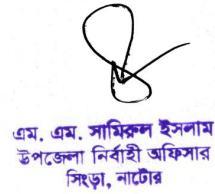 এম. এম. সামিরুল ইসলাম
উপজেলা নির্বাহী অফিসার
সিংড়া, নাটোর